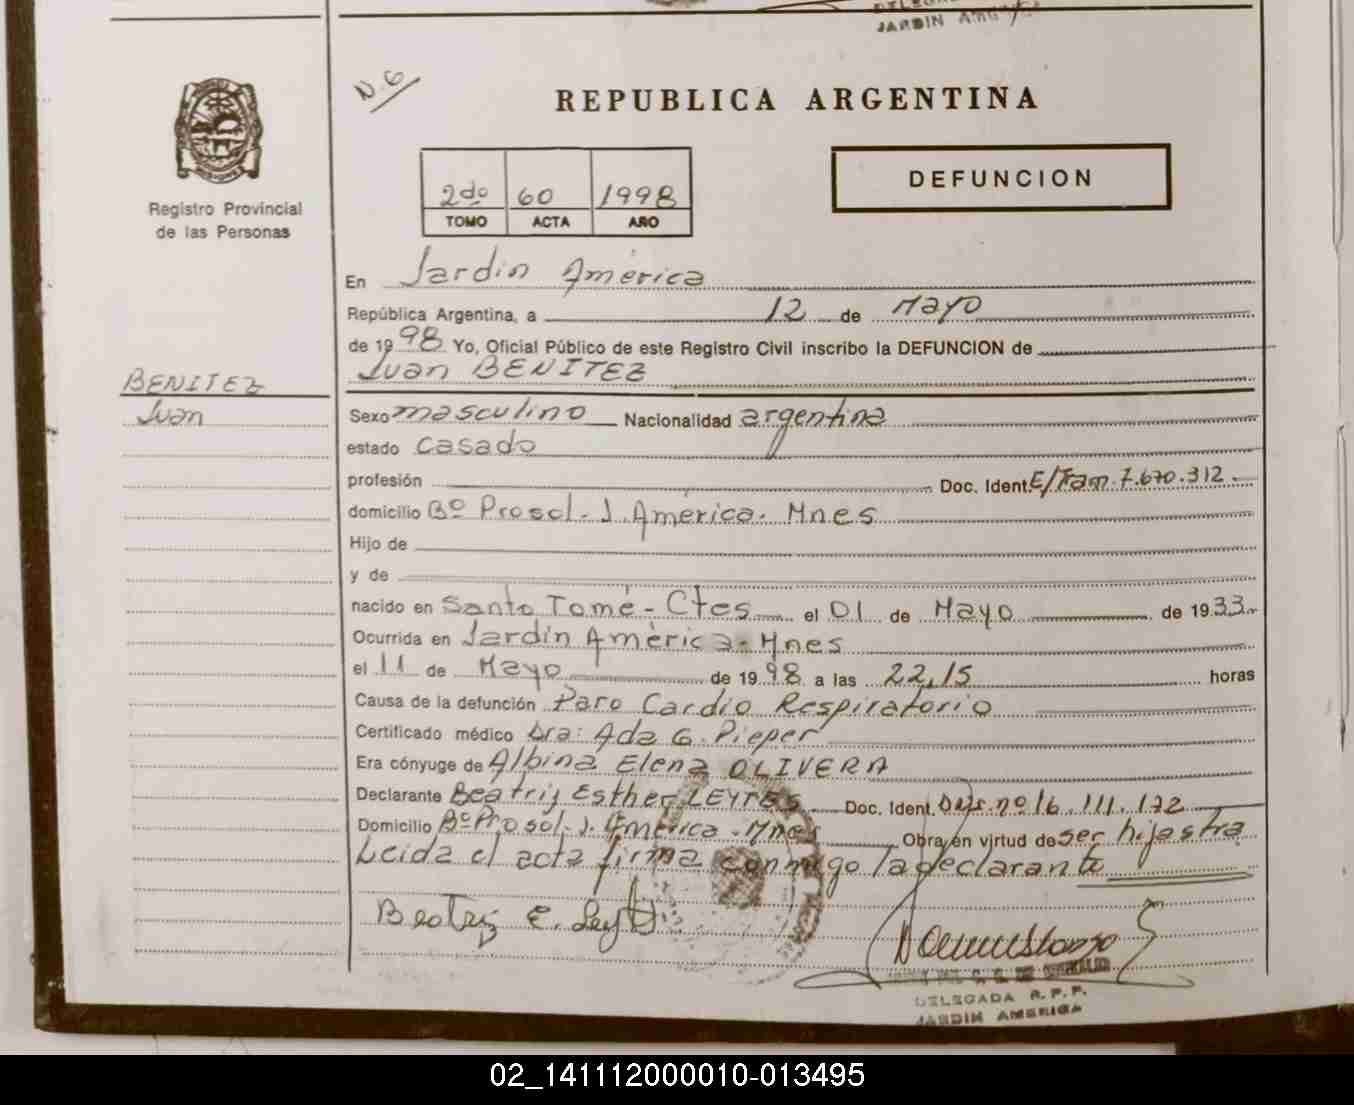 JARDIN AMERICA
N.G
REPUBLICA ARGENTINA
2do 60 1998
TOMO ACTA AÑO
DEFUNCION
Registro Provincial
de las Personas
En Jardín América
República Argentina, a 12 de Mayo
de 1998 Yo, Oficial Público de este Registro Civil inscribo la DEFUNCION de
Juan BENITEZ
BENITEZ
Juan
Sexo masculino Nacionalidad argentina
estado casado
profesión Doc. Ident. E/Tram. 7.670.312
domicilio Bº Prosol. J. América. Mnes
Hijo de
y de
nacido en Santo Tomé - Ctes el 01 de Mayo de 1933
Ocurrida en Jardín América. Mnes
el 11 de Mayo de 1998 a las 22,15 horas
Causa de la defunción Paro Cardio Respiratorio
Certificado médico Dra: Ada G. Pieper
Era cónyuge de Albina Elena OLIVERA
Declarante Beatriz Esther LEYTES Doc. Ident. nº 16.111.172
Domicilio Bº Prosol. J. América. Mnes Obra en virtud de ser hijastra
Leida el acta firma conmigo la declarante
Beatriz E. Leyt
DELEGADA R.P.P.
JARDIN AMERICA
02_141112000010-013495